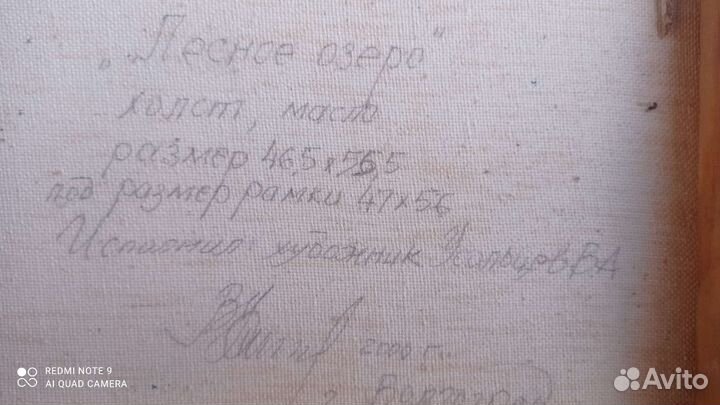 „Лесное озеро"
холст, масло
размер 46,5х55,5
под размер рамки 47х56
Исполнил художник Кольцов В А
2000 г.
г Волгоград
REDMI NOTE 9
AI QUAD CAMERA
Avito